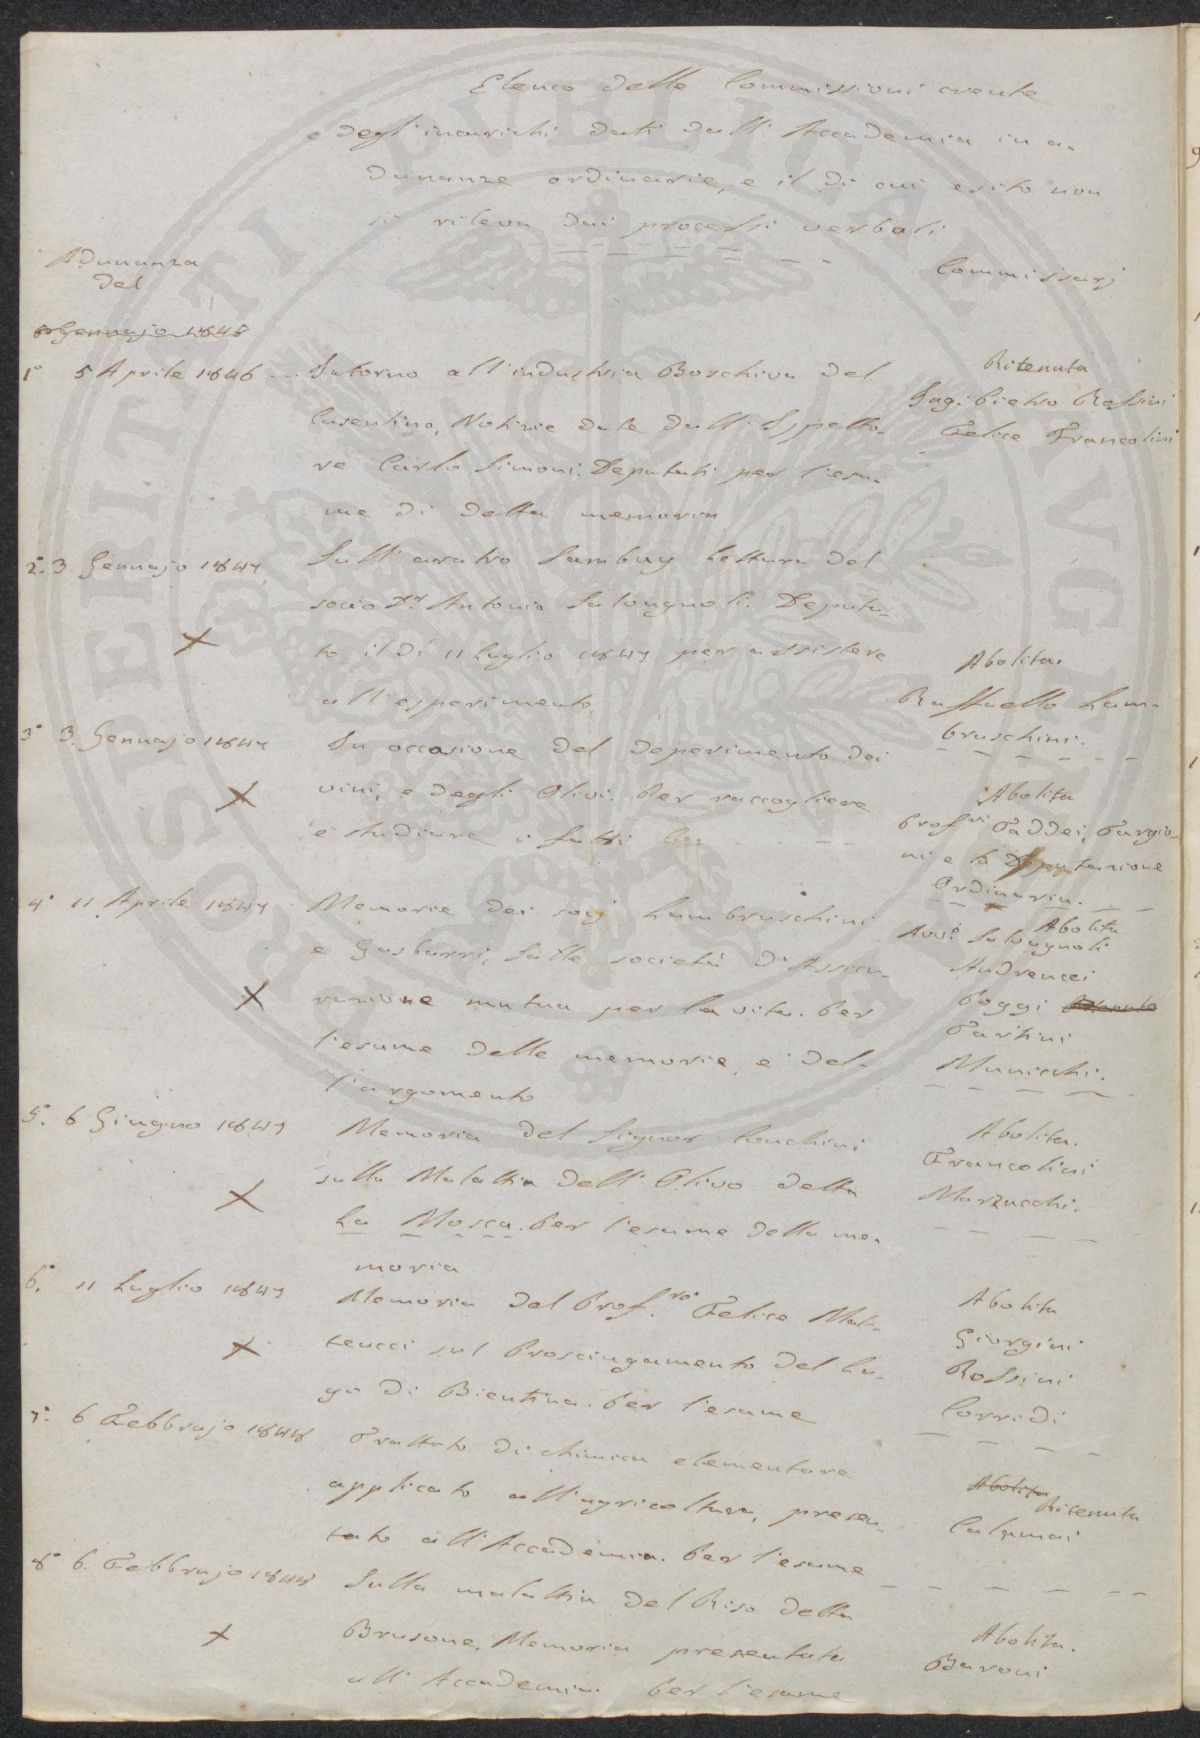 Elenco delle Commissioni create
e degl'incarichi dati dall'Accademia in a-
dunanze ordinarie, e il di cui esito non
si rileva dai processi verbali
Adunanza
del
Commissarj
Gennajo 1846
1° 5 Aprile 1846 Intorno all'industria Boschiva del
Casentino, Notizie date dall'Ispetto-
re Carlo Simoni. Deputati per l'esa-
me di detta memoria
Ritenuta
Ingi. Pietro Rossini
Felice Francolini
2°. 3 Gennajo 1847 Sull'aratro Sambuy Lettura del
socio Dr. Antonio Salvagnoli. Deputa-
to il dì 11 Luglio 1847 per assistere
all'esperimento.
Abolita.
Raffaello Lam-
bruschini.
3° 3. Gennajo 1847 In occasione del deperimento dei
vini, e degli Olivi. Per raccogliere
e studiare i fatti
Abolita
Prof.ri Taddei, Targio-
ni e la Deputazione
Ordinaria.
4° 11 Aprile 1847 Memorie dei socj Lambruschini
e Gasbarri, sulle società d'Assicu-
razione mutua per la vita. Per
l'esame delle memorie, e del-
l'argomento
Abolita
Avv.i Salvagnoli
Andreucci
Poggi Ritenuta
Tartini
Municchi.
5°. 6 Giugno 1847 Memoria del Signor Ronchini
sulla Malattia dell'Olivo detta
La Mosca. Per l'esame della me-
moria
Abolita.
Francolini
Marzucchi.
6°. 11 Luglio 1847 Memoria del Prof.re Felice Mat-
teucci sul Prosciugamento del La-
go di Bientina. Per l'esame
Abolita
Giorgini
Rossini
Corridi
7°. 6 Febbrajo 1848 Trattato di chimica elementare
applicato all'agricoltura, presen-
tato all'Accademia. Per l'esame
Abolita
Ritenuta
Calamai
8° 6. Febbrajo 1848 Sulla malattia del Riso detta
Brusone. Memoria presentata
all'Accademia. Per l'esame
Abolita.
Baroni
PROSPERITATI PUBLICAE AUGENDAE